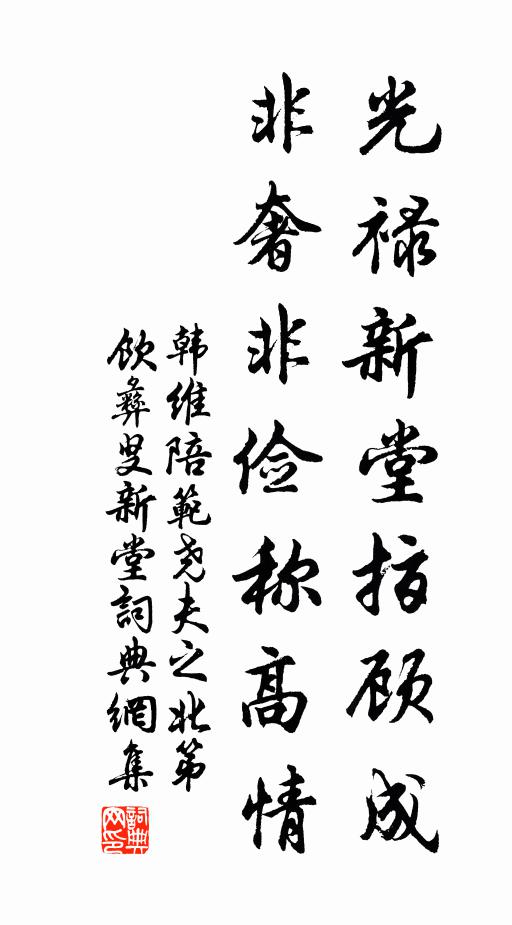 光禄新堂指顾成
非奢非俭称高情
韩维陪範尧夫之北第
饮彝叟新堂詞典網集
詞典网印